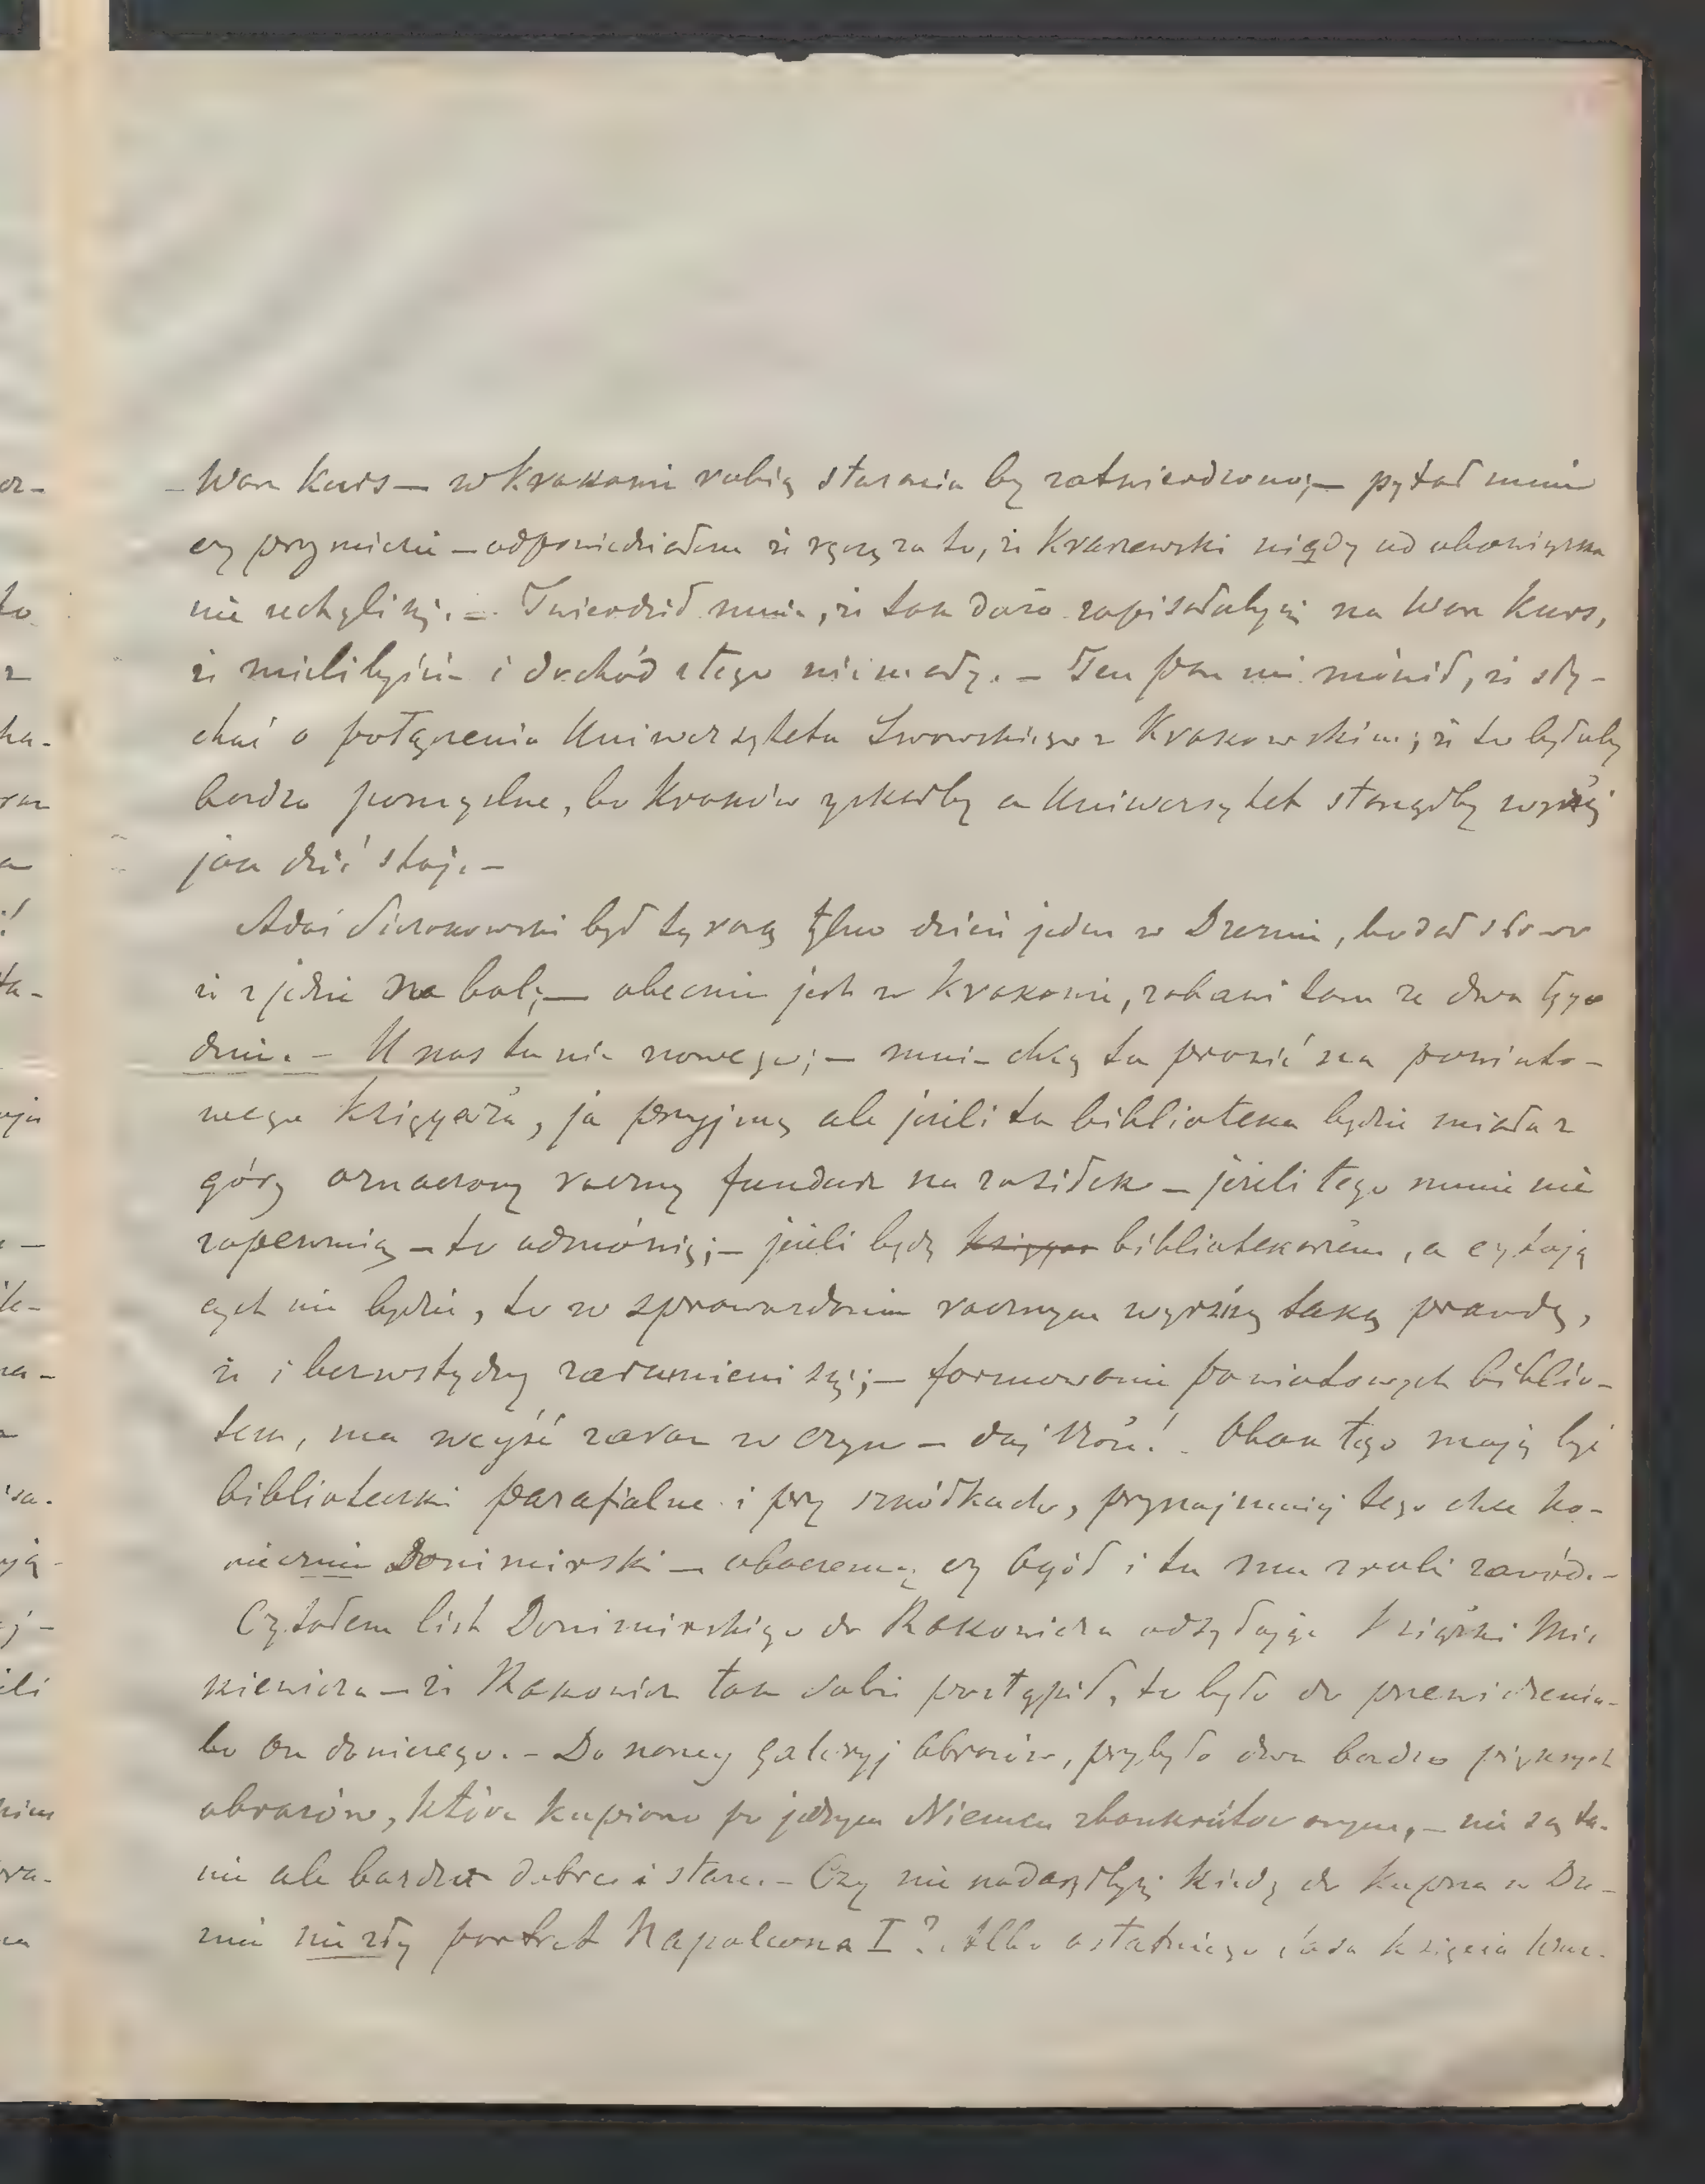 – Wasz kurs — w Krakowie robią starania by zatwierdzono; — pytał mnie
czy przyjmiecie — odpowiedziałem że ręczę za to, że Kraszewski nigdy od obowiązku
nie uchyli się. — Twierdził mnie, że tak dużo zapisałoby się na Wasz kurs,
że mielibyście i dochód z tego niemały. — Ten pan mi mówił, że sły-
chać o połączeniu Uniwersytetu Lwowskiego z Krakowskim; że to byłoby
bardzo pomyślne, bo Kraków zyskałby a Uniwersytet stanąłby wyżej
jak dziś stoi. —
Adaś Sierakowski był tą razą tylko dzień jeden w Dreznie, bo dał słowo
że zjedzie na bal; — obecnie jest w Krakowie, zabawi tam ze dwa tygo
dnie. — U nas tu nic nowego; — mnie chcą tu prosić na powiato-
wego księgarza, ja przyjmę ale jeżeli ta biblioteka będzie miała z
góry oznaczony roczny fundusz na zasiłek — jeżeli tego mnie nie
zapewnią — to odmówię; — jeżeli będę księgar bibliotekarzem, a czytają
cych nie będzie, to w sprawozdaniu rocznym wyrżnę taką prawdę,
że i bezwstydny zarumieni się; — formowanie powiatowych biblio-
tek, ma wejść zaraz w czyn — daj Boże! Obok tego mają być
biblioteczki parafialne i przy szkółkach, przynajmniej tego chce ko-
niecznie Donimirski — obaczemy czy ogół i tu mu zrobi zawód. —
Czytałem list Donimirskiego do Rakowicza odsyłając książki Mic
kiewicza — że Rakowicz tak sobie postąpił, to było do przewidzenia –
bo on do niczego. — Do naszej galeryj obrazów, przybyło dwa bardzo pięknych
obrazów, które kupiono po jednym Niemcu zbankrutowanym, — nie są ta-
nie ale bardzo dobre i stare. — Czy nie nadarzyłby się kiedy do kupna w Dre-
znie nie zły portret Napoleona I? Albo ostatniego